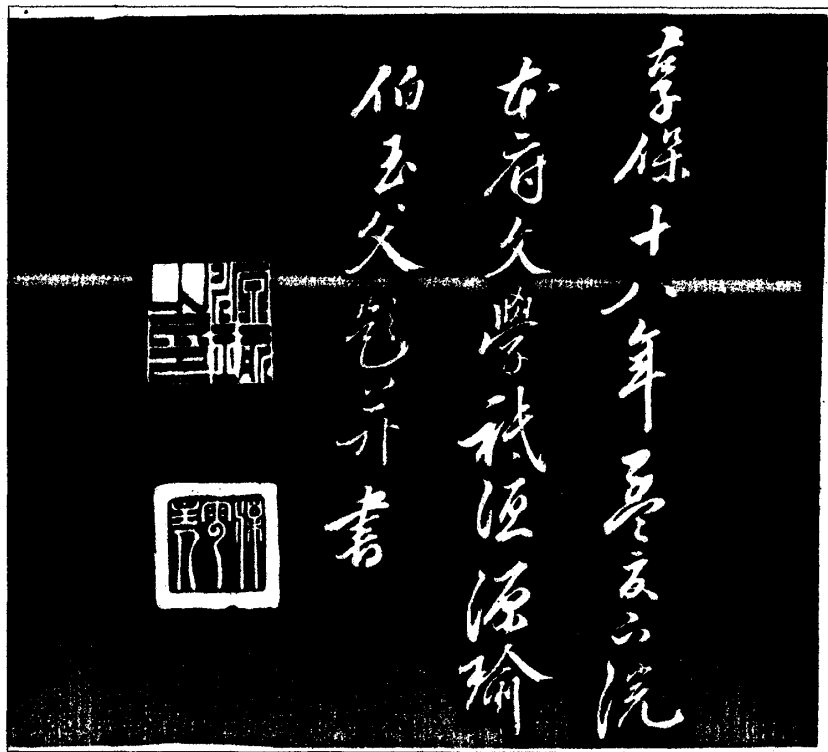 享保十八年孟夏下浣
本府文學祇洹源瑜
伯玉父題并書